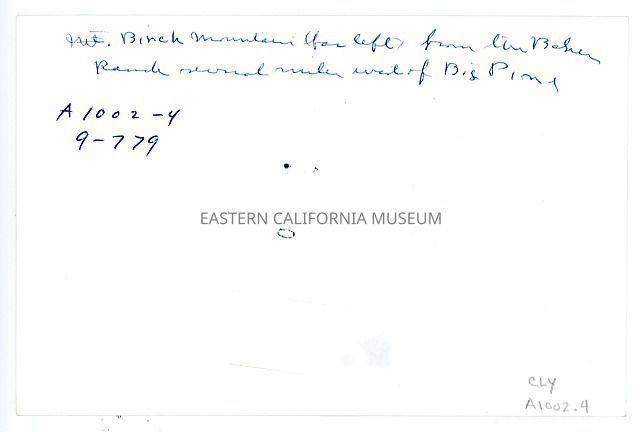 Mt. Birch Mountain (far left) from the Baker
Ranch several miles west of Big Pine
A1002-4
9-779
EASTERN CALIFORNIA MUSEUM
CLY
A1002.4